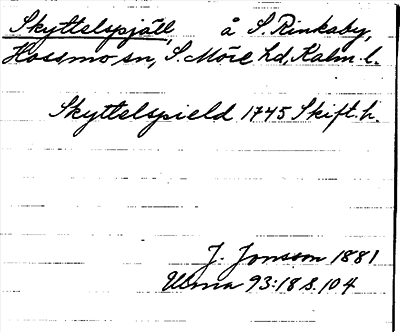 Skyttelspjäll, å S. Rinkaby,
Hossmo sn, S. Möre hd, Kalm. l.
Skyttelspield 1745 Skift. h.
J. Jonsson 1881
Uma 93:18 s. 104